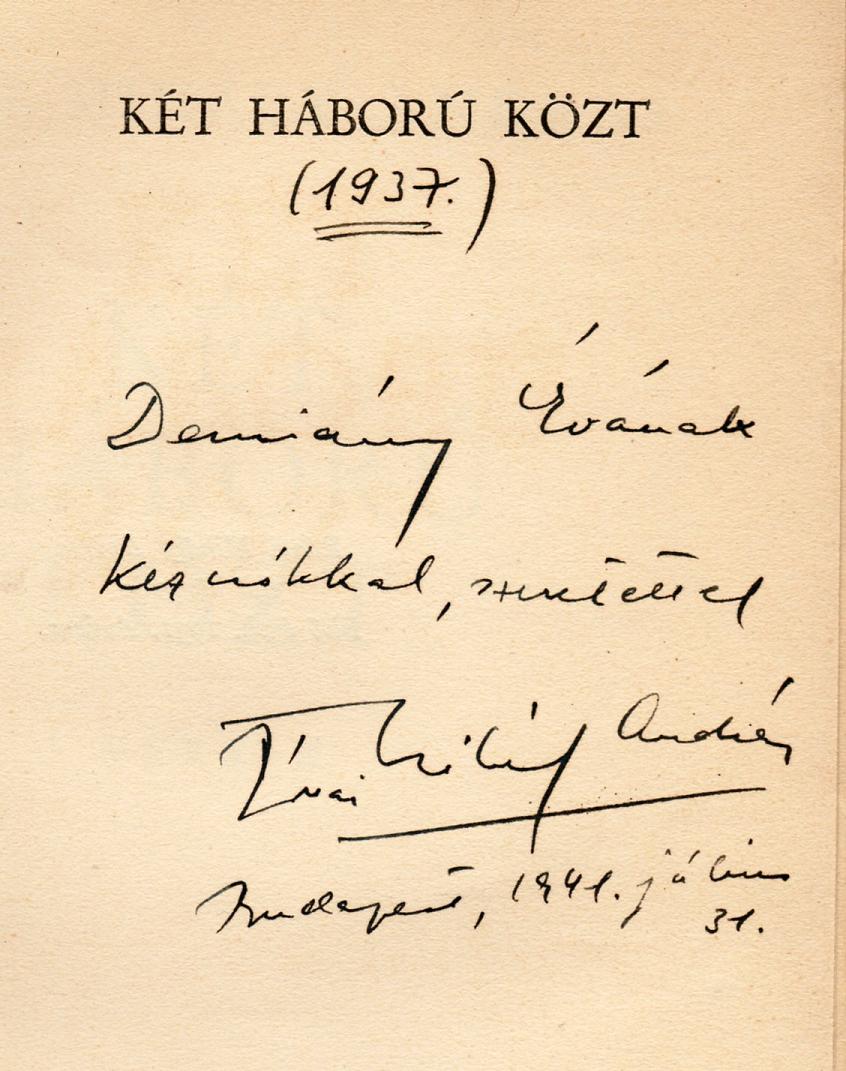 KÉT HÁBORÚ KÖZT
(1937.)
Demiány Évának
kézcsókkal, szeretettel
András
Budapest, 1941. július
31.